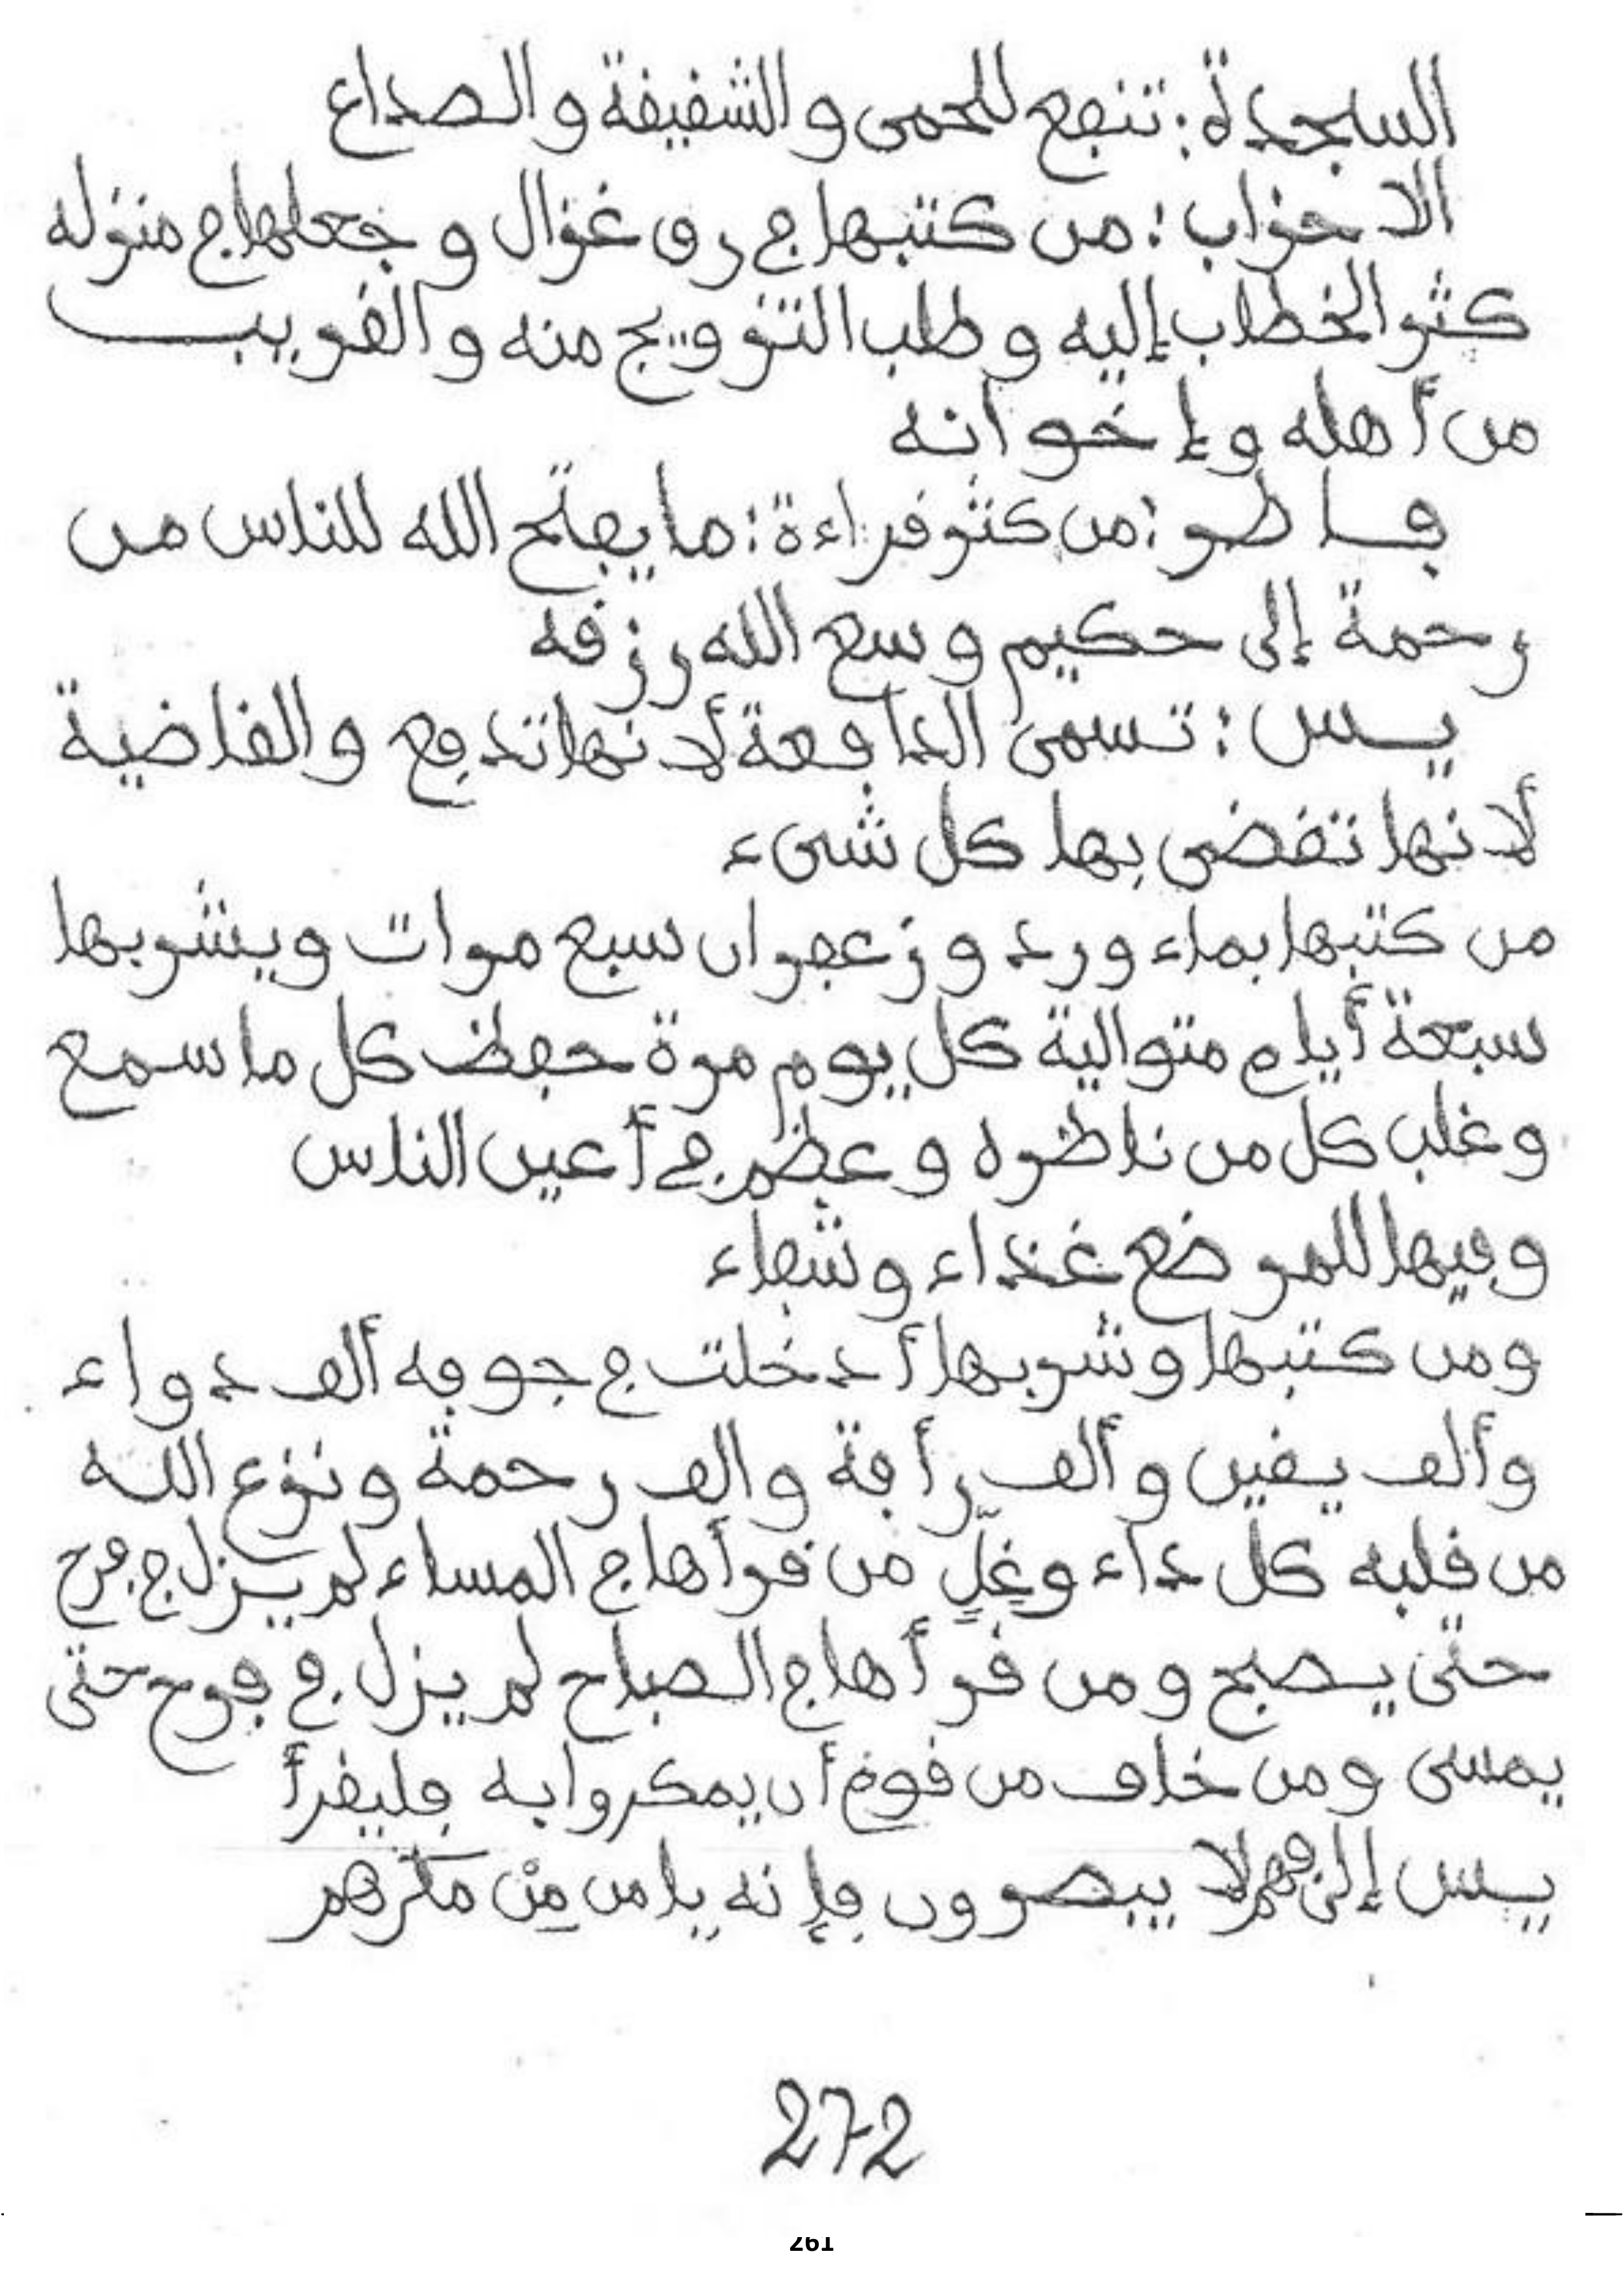 السجدة: تنفع للحمى والشقيقة والصداع
الاحزاب: من كتبها في رق غزال وجعلها في منزله
كثر الخطاب إليه وطلب التزويج منه والقريب
من أهله وإخوانه
فاطر: من كثر قراءة: ما يفتح الله للناس من
رحمة إلى حكيم وسع الله رزقه
يس: تسمى الدافعة لأنها تدفع والقاضية
لأنها تقضى بها كل شىء
من كتبها بماء ورد وزعفران سبع مرات ويشربها
سبعة أيام متوالية كل يوم مرة حفظ كل ما سمع
وغلب كل من ناظره وعظم في أعين الناس
وفيها للمرضع غذاء وشفاء
ومن كتبها وشربها أدخلت في جوفه ألف دواء
وألف يقين وألف رأفة والف رحمة ونزع الله
من قلبه كل داء وغِلٍّ من قرأها في المساء لم يزل في فرح
حتى يصبح ومن قرأها في الصباح لم يزل في فرح حتى
يمسى ومن خاف من قوم أن يمكروا به فليقرأ
يس إلى فهم لا يبصرون فإنه يامن مِنْ مكرهم
272
261